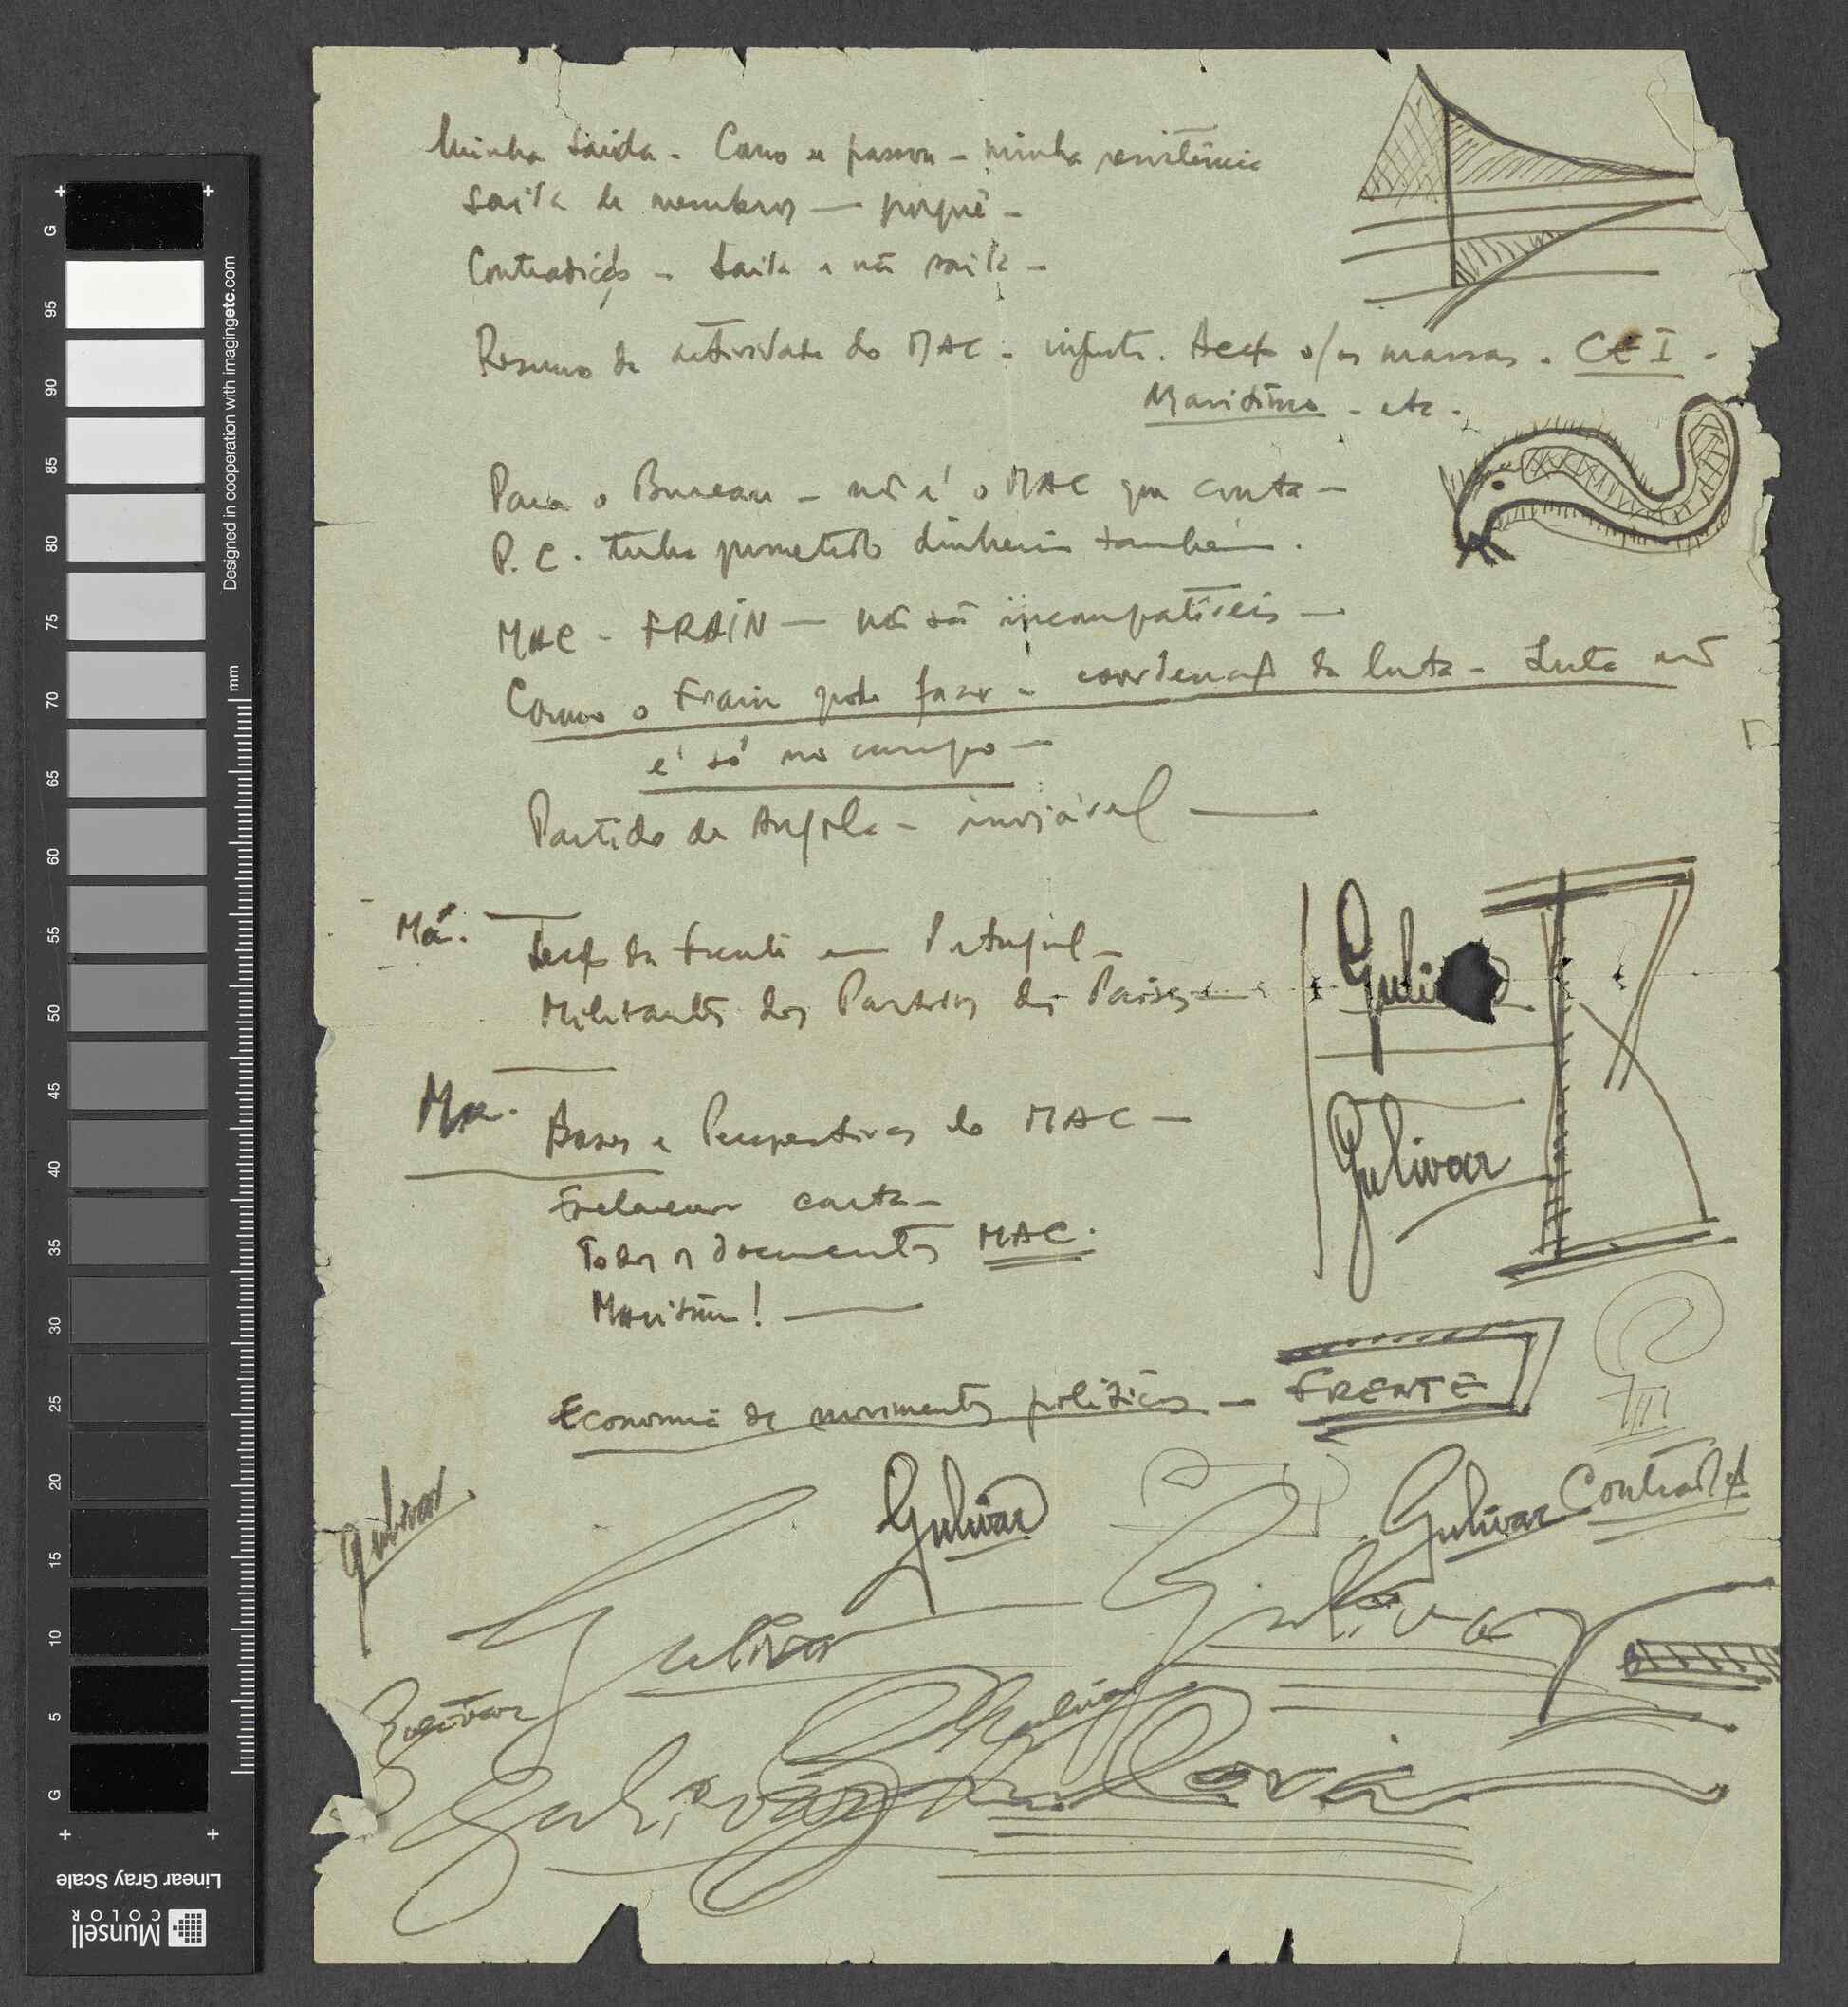 Minha saída - Como se passou - minha resistência
saída de membros — porquê -
Contradição - saída e não saída -
Resumo da actividade do MAC - . Acção s/ as massas . CEI -
Marítimo - etc.
Para o Bureau - não é o MAC que conta -
P.C. tinha prometido dinheiro também .
MAC - FRAIN — não são incompatíveis —
Como o Frain pode fazer a coordenação da luta - Luta não
é só no campo —
Partido de Angola - inviável —
Má. Secção da Frente em Portugal -
Militantes dos Partidos dos Países —
Ma. Bases e Perspectivas do MAC —
Esclarecer carta -
Todos os documentos MAC.
Marítimo! —
Economia de movimentos políticos — FRENTE
Gulivar
Gulivar
Gulivar
Gulivar
Gulivar
Gulivar
Gulivar
Gulivar
Gulivar
Gulivar
Designed in cooperation with imagingetc.com
mm
G
95
90
85
80
75
70
65
60
55
50
45
40
35
30
25
20
15
10
5
G
Linear Gray Scale
Munsell
COLOR